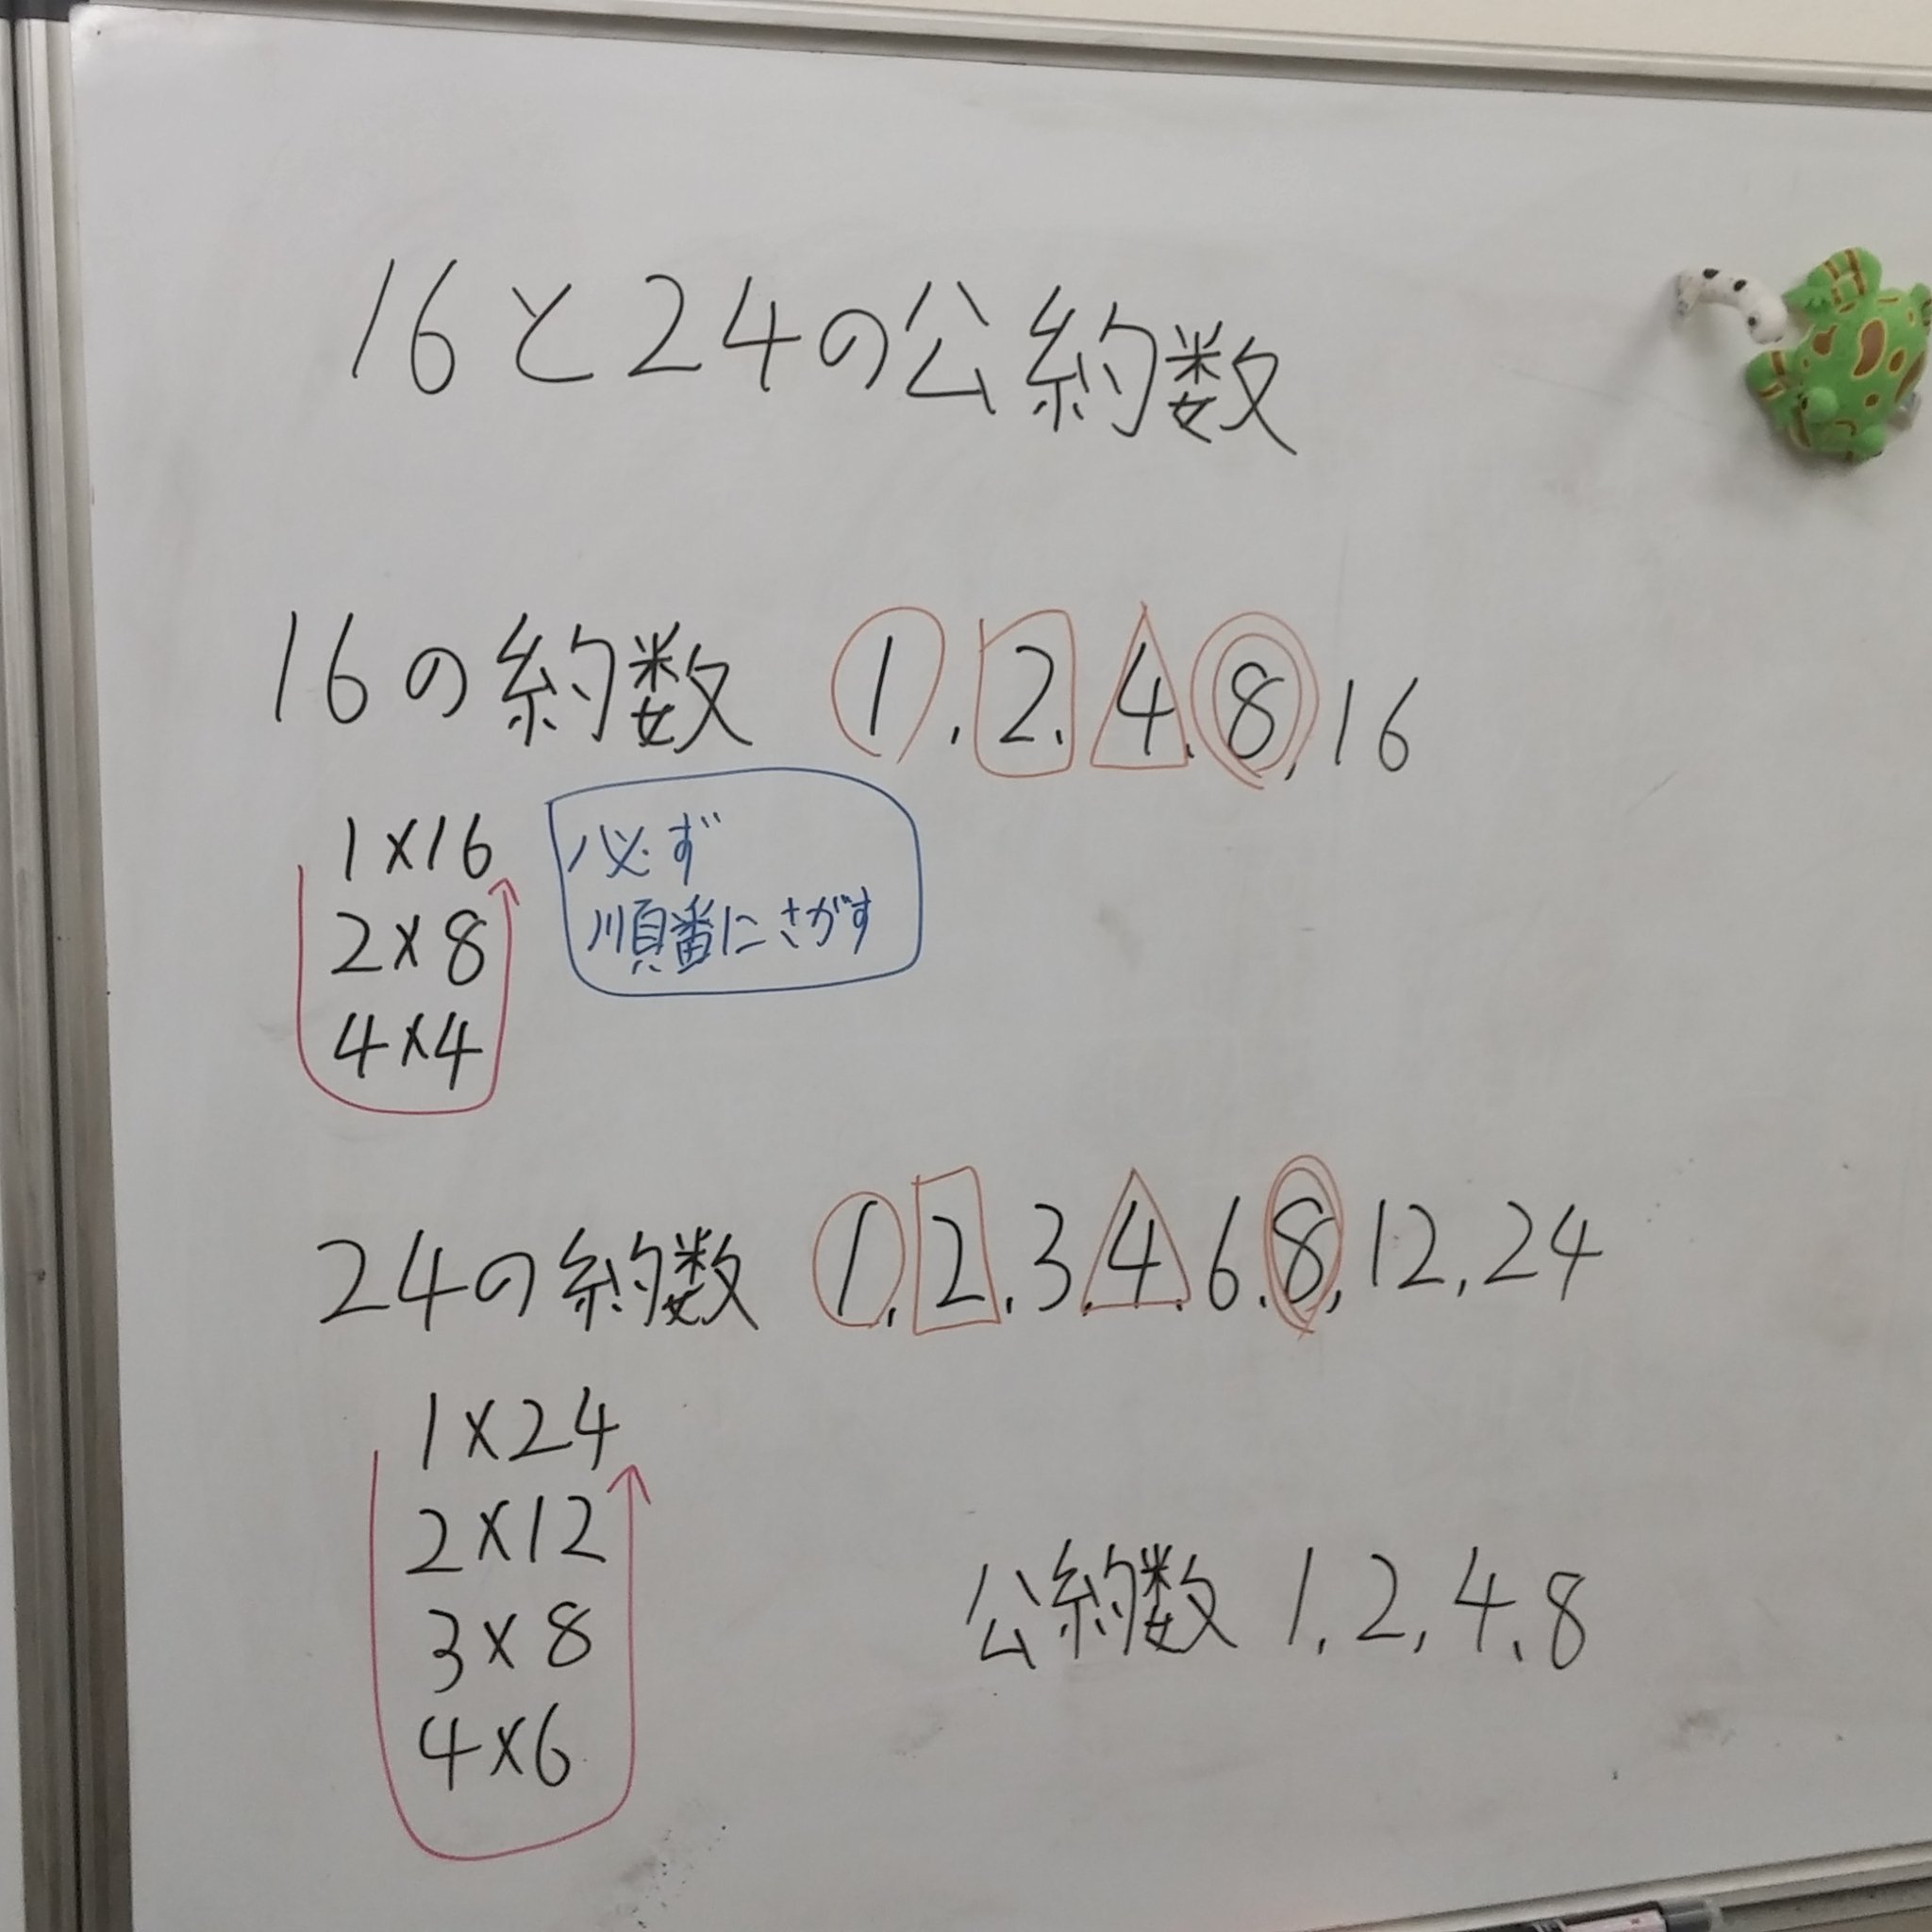 16と24の公約数
16の約数 1, 2, 4, 8, 16
1×16
2×8
4×4
必ず
順番にさがす
24の約数 1, 2, 3, 4, 6, 8, 12, 24
1×24
2×12
3×8
4×6
公約数 1, 2, 4, 8